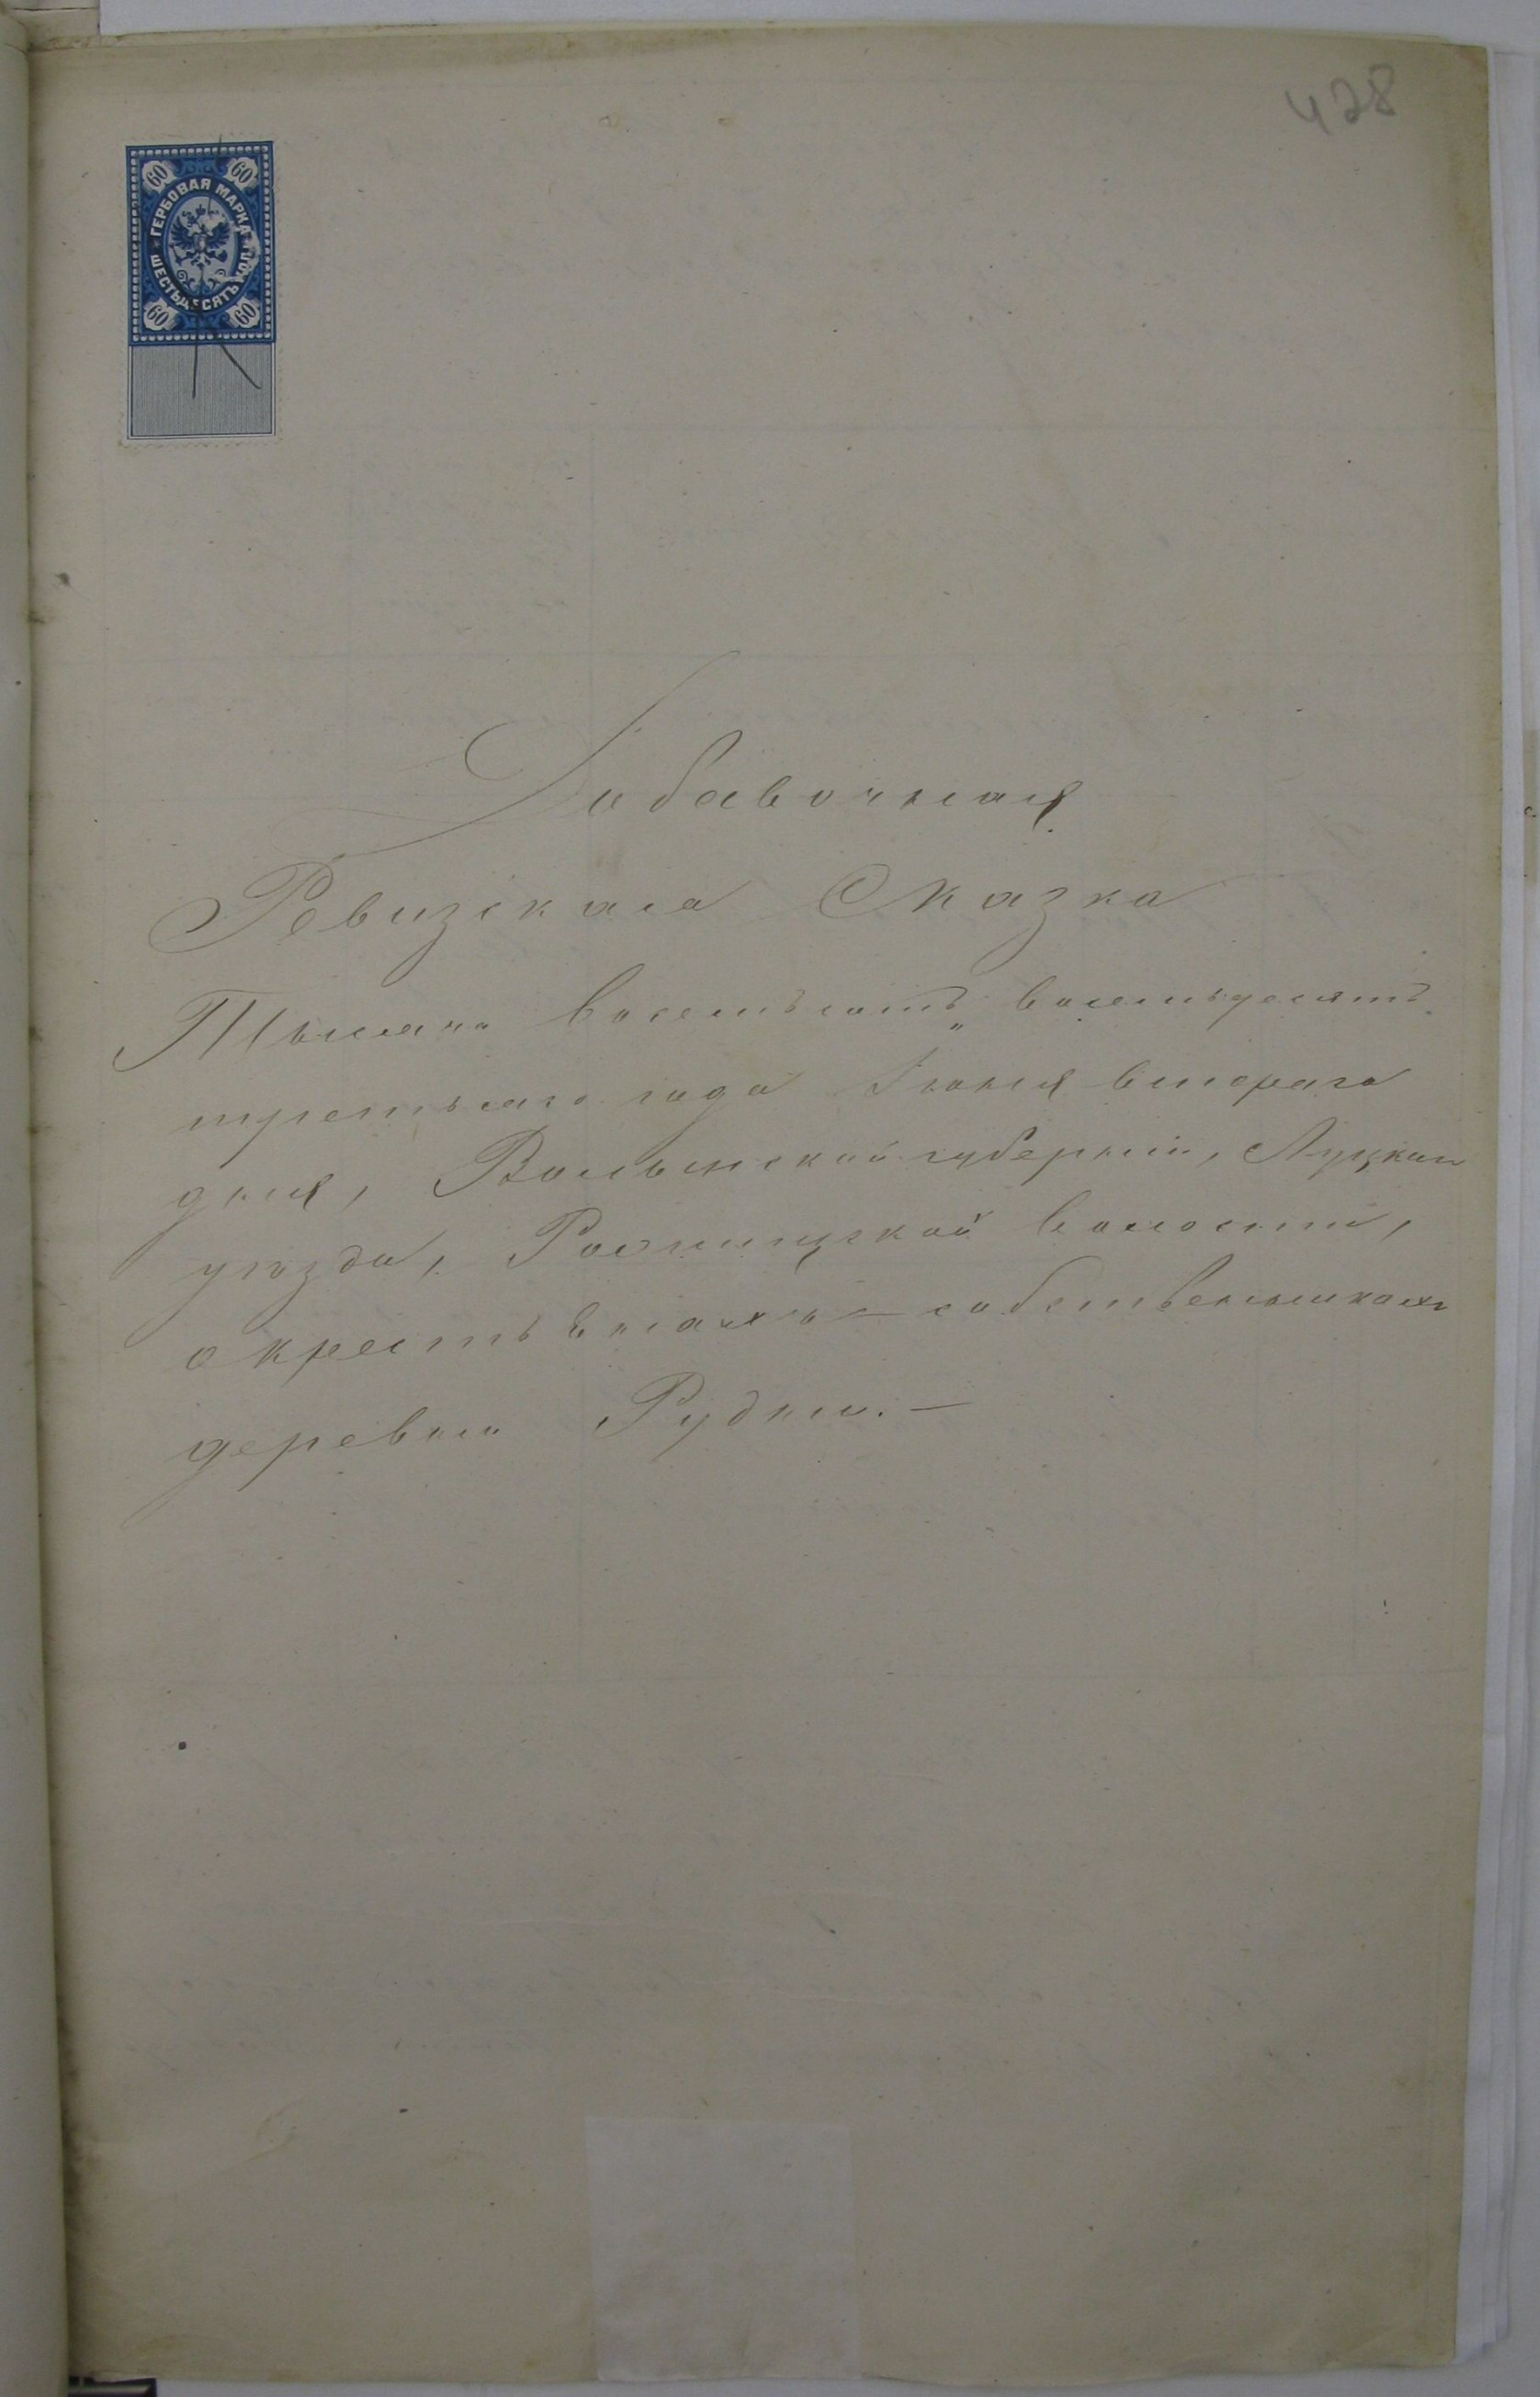 428
60 60
ГЕРБОВАЯ МАРКА
ШЕСТЬДЕСЯТЪ КОП.
60 60
Добавочная
Ревизская Сказка
Тысяча восемьсотъ восемьдесятъ
третьяго года Іюня втораго
дня, Волынской губерніи, Луцкаго
уѣзда, Рожищской волости,
о крестьянахъ – собственникахъ
деревни Рудни. –